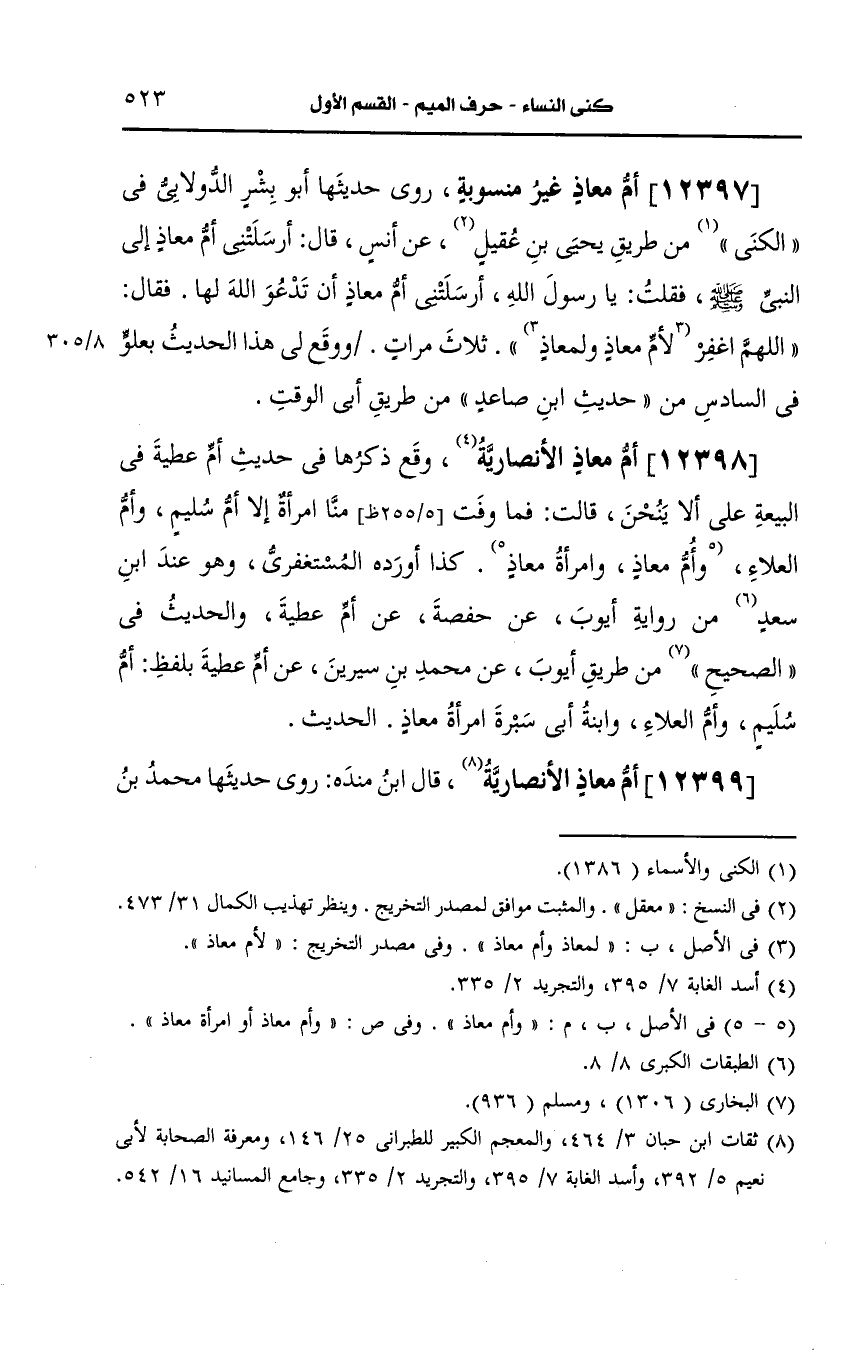 كنى النساء - حرف الميم - القسم الأول ٥٢٣
[١٢٣٩٧] أمُّ معاذٍ غيرُ منسوبةٍ ، روى حديثَها أبو بِشْرٍ الدُّولابِىُّ فى
« الكنَى »(١) من طريقِ يحيَى بنِ عُقيلٍ(٢) ، عن أنسٍ ، قال: أرسَلَتْنِى أمُّ معاذٍ إلى
النبىِّ ﷺ ، فقلتُ: يا رسولَ اللهِ ، أرسَلَتْنِى أمُّ معاذٍ أن تَدْعُوَ اللهَ لها . فقال:
« اللهمَّ اغفِرْ (٣لأمِّ معاذٍ ولمعاذٍ٣) » . ثلاثَ مراتٍ . /ووقَع لى هذا الحديثُ بعلوٍّ ٣٠٥/٨
فى السادسِ من « حديثِ ابنِ صاعدٍ » من طريقِ أبى الوقتِ .
[١٢٣٩٨] أمُّ معاذٍ الأنصاريَّةُ(٤) ، وقَع ذكرُها فى حديثِ أمِّ عطيةَ فى
البيعةِ على ألا يَنُحْنَ ، قالت: فما وفَت [٢٥٥/٥ظ] منَّا امرأةٌ إلا أمُّ سُليمٍ ، وأمُّ
العلاءِ ، (٥وأُمُّ معاذٍ ، وامرأةُ معاذٍ٥) . كذا أورَده المُسْتغفرىُّ ، وهو عندَ ابنِ
سعدٍ(٦) من روايةِ أيوبَ ، عن حفصةَ ، عن أمِّ عطيةَ ، والحديثُ فى
« الصحيحِ »(٧) من طريقِ أيوبَ ، عن محمدِ بنِ سيرينَ ، عن أمِّ عطيةَ بلفظِ: أمُّ
سُلَيمٍ ، وأمُّ العلاءِ ، وابنةُ أبى سَبْرةَ امرأةُ معاذٍ . الحديث .
[١٢٣٩٩] أمُّ معاذٍ الأنصاريَّةُ(٨) ، قال ابنُ مندَه: روى حديثَها محمدُ بنُ
(١) الكنى والأسماء ( ١٣٨٦).
(٢) فى النسخ : « معقل » . والمثبت موافق لمصدر التخريج . وينظر تهذيب الكمال ٣١/ ٤٧٣.
(٣) فى الأصل ، ب : « لمعاذ وأم معاذ » . وفى مصدر التخريج : « لأم معاذ ».
(٤) أسد الغابة ٧/ ٣٩٥، والتجريد ٢/ ٣٣٥.
(٥ - ٥) فى الأصل ، ب ، م : « وأم معاذ » . وفى ص : « وأم معاذ أو امرأة معاذ » .
(٦) الطبقات الكبرى ٨/ ٨.
(٧) البخارى ( ١٣٠٦) ، ومسلم ( ٩٣٦).
(٨) ثقات ابن حبان ٣/ ٤٦٤، والمعجم الكبير للطبرانى ٢٥/ ١٤٦، ومعرفة الصحابة لأبى
نعيم ٥/ ٣٩٢، وأسد الغابة ٧/ ٣٩٥، والتجريد ٢/ ٣٣٥، وجامع المسانيد ١٦/ ٥٤٢.